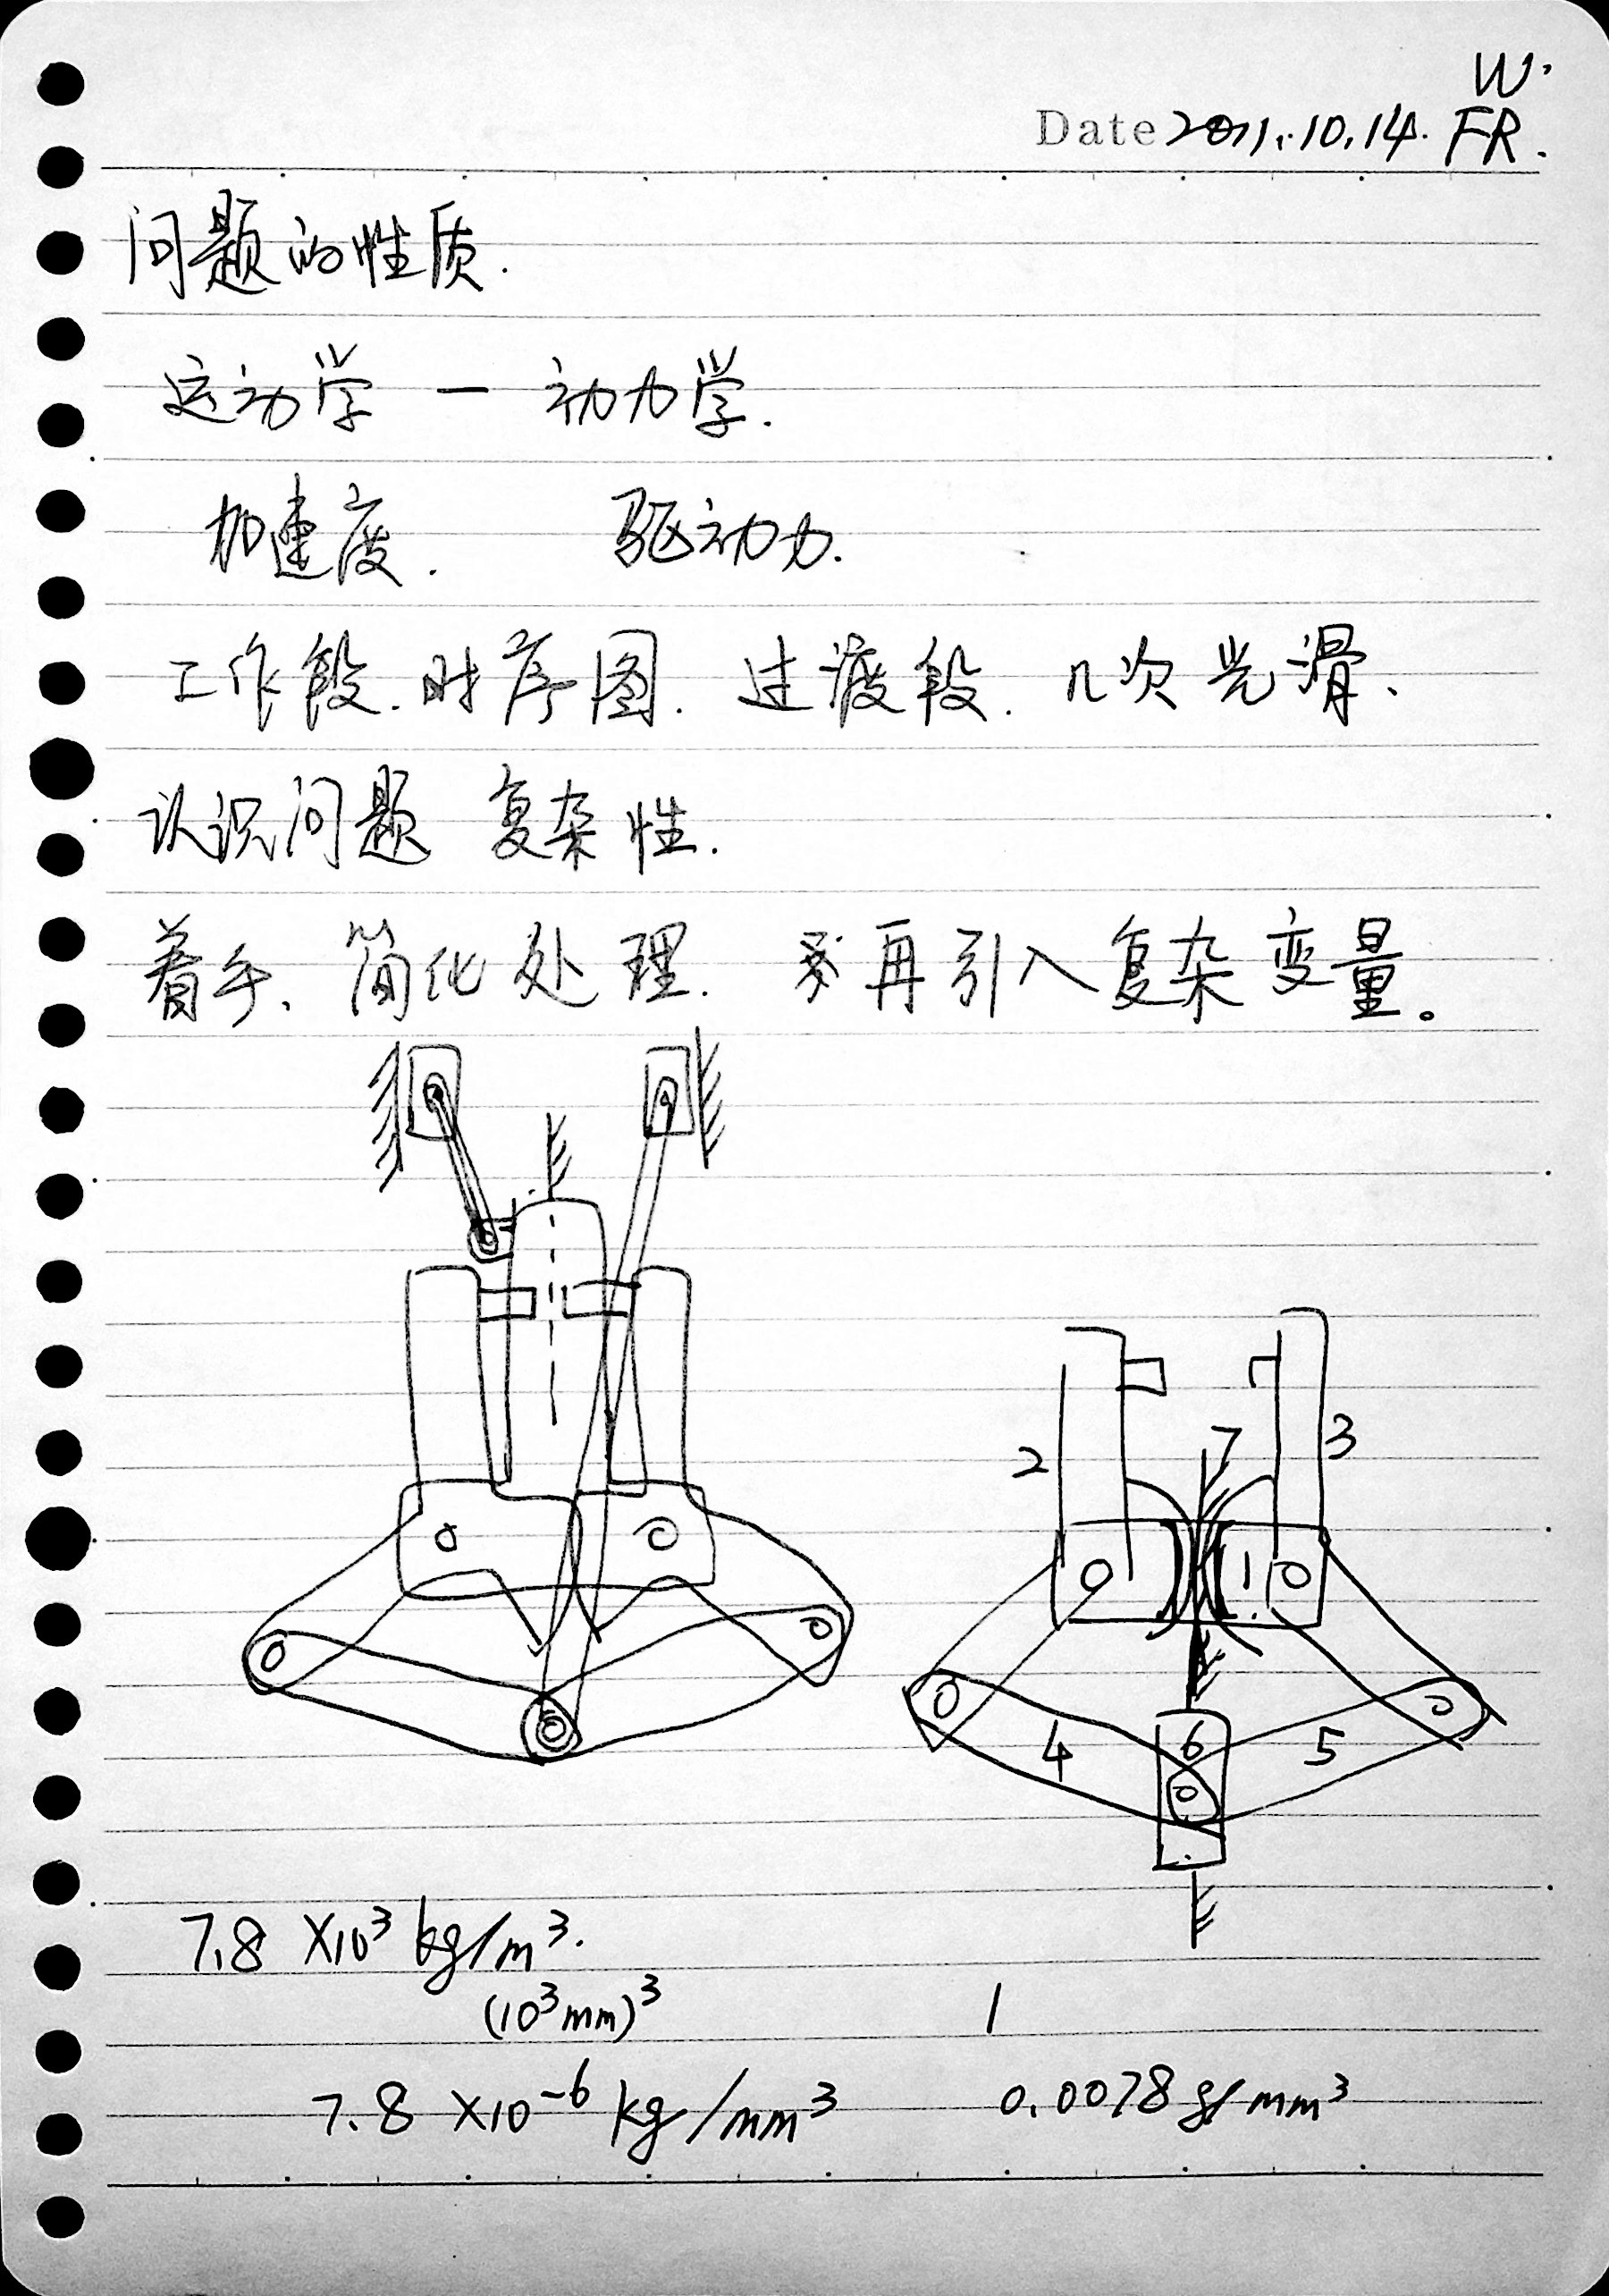 W.
Date 2011.10.14. FR.
问题的性质.
运动学 — 动力学.
加速度. 驱动力.
工作段.时序图. 过渡段. 几次光滑.
认识问题 复杂性.
着手、简化处理. 再引入复杂变量。
2 7 3
1
4 6 5
7.8 ×10³ kg/m³.
(10³mm)³
7.8 ×10⁻⁶ kg/mm³ 0.0078 g/mm³